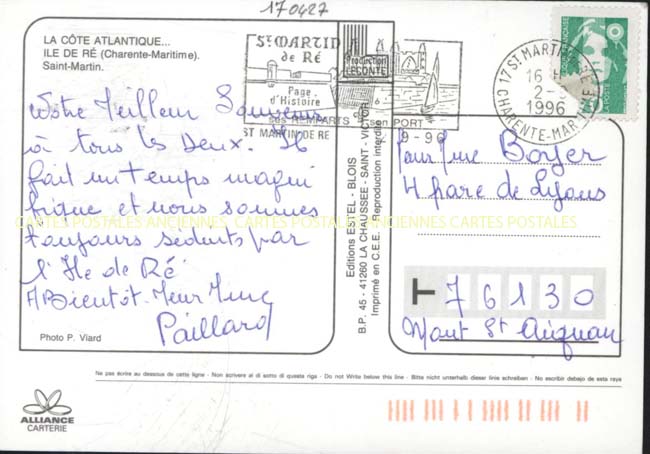 170427
LA CÔTE ATLANTIQUE...
ILE DE RÉ (Charente-Maritime).
Saint-Martin.
St MARTIN
de RÉ
Page
d'Histoire
ses REMPARTS
son PORT
ST MARTIN DE RE
Production
LECONTE
17 ST MARTIN DE RE
16 H
2-
1996
CHARENTE-MARITIME
9-96
Notre Meilleur Souvenir
à tous les Deux. Il
fait un temps magni
fique et nous sommes
toujours séduits par
l'Ile de Ré
A Bientôt
Paillard
Photo P. Viard
Editions ESTEL - BLOIS
B.P. 45 - 41260 LA CHAUSSEE - SAINT - VICTOR
Imprimé en C.E.E. Reproduction interdite
Boyer
4 parc de Lyons
76130
Mont St Aignan
CARTES POSTALES ANCIENNES CARTES POSTALES ANCIENNES CARTES POSTALES
Ne pas écrire au dessous de cette ligne - Non scrivere al di sotto di questa riga - Do not Write below this line - Bitte nicht unterhalb dieser linie schreiben - No escribir debajo de esta raya
ALLIANCE
CARTERIE